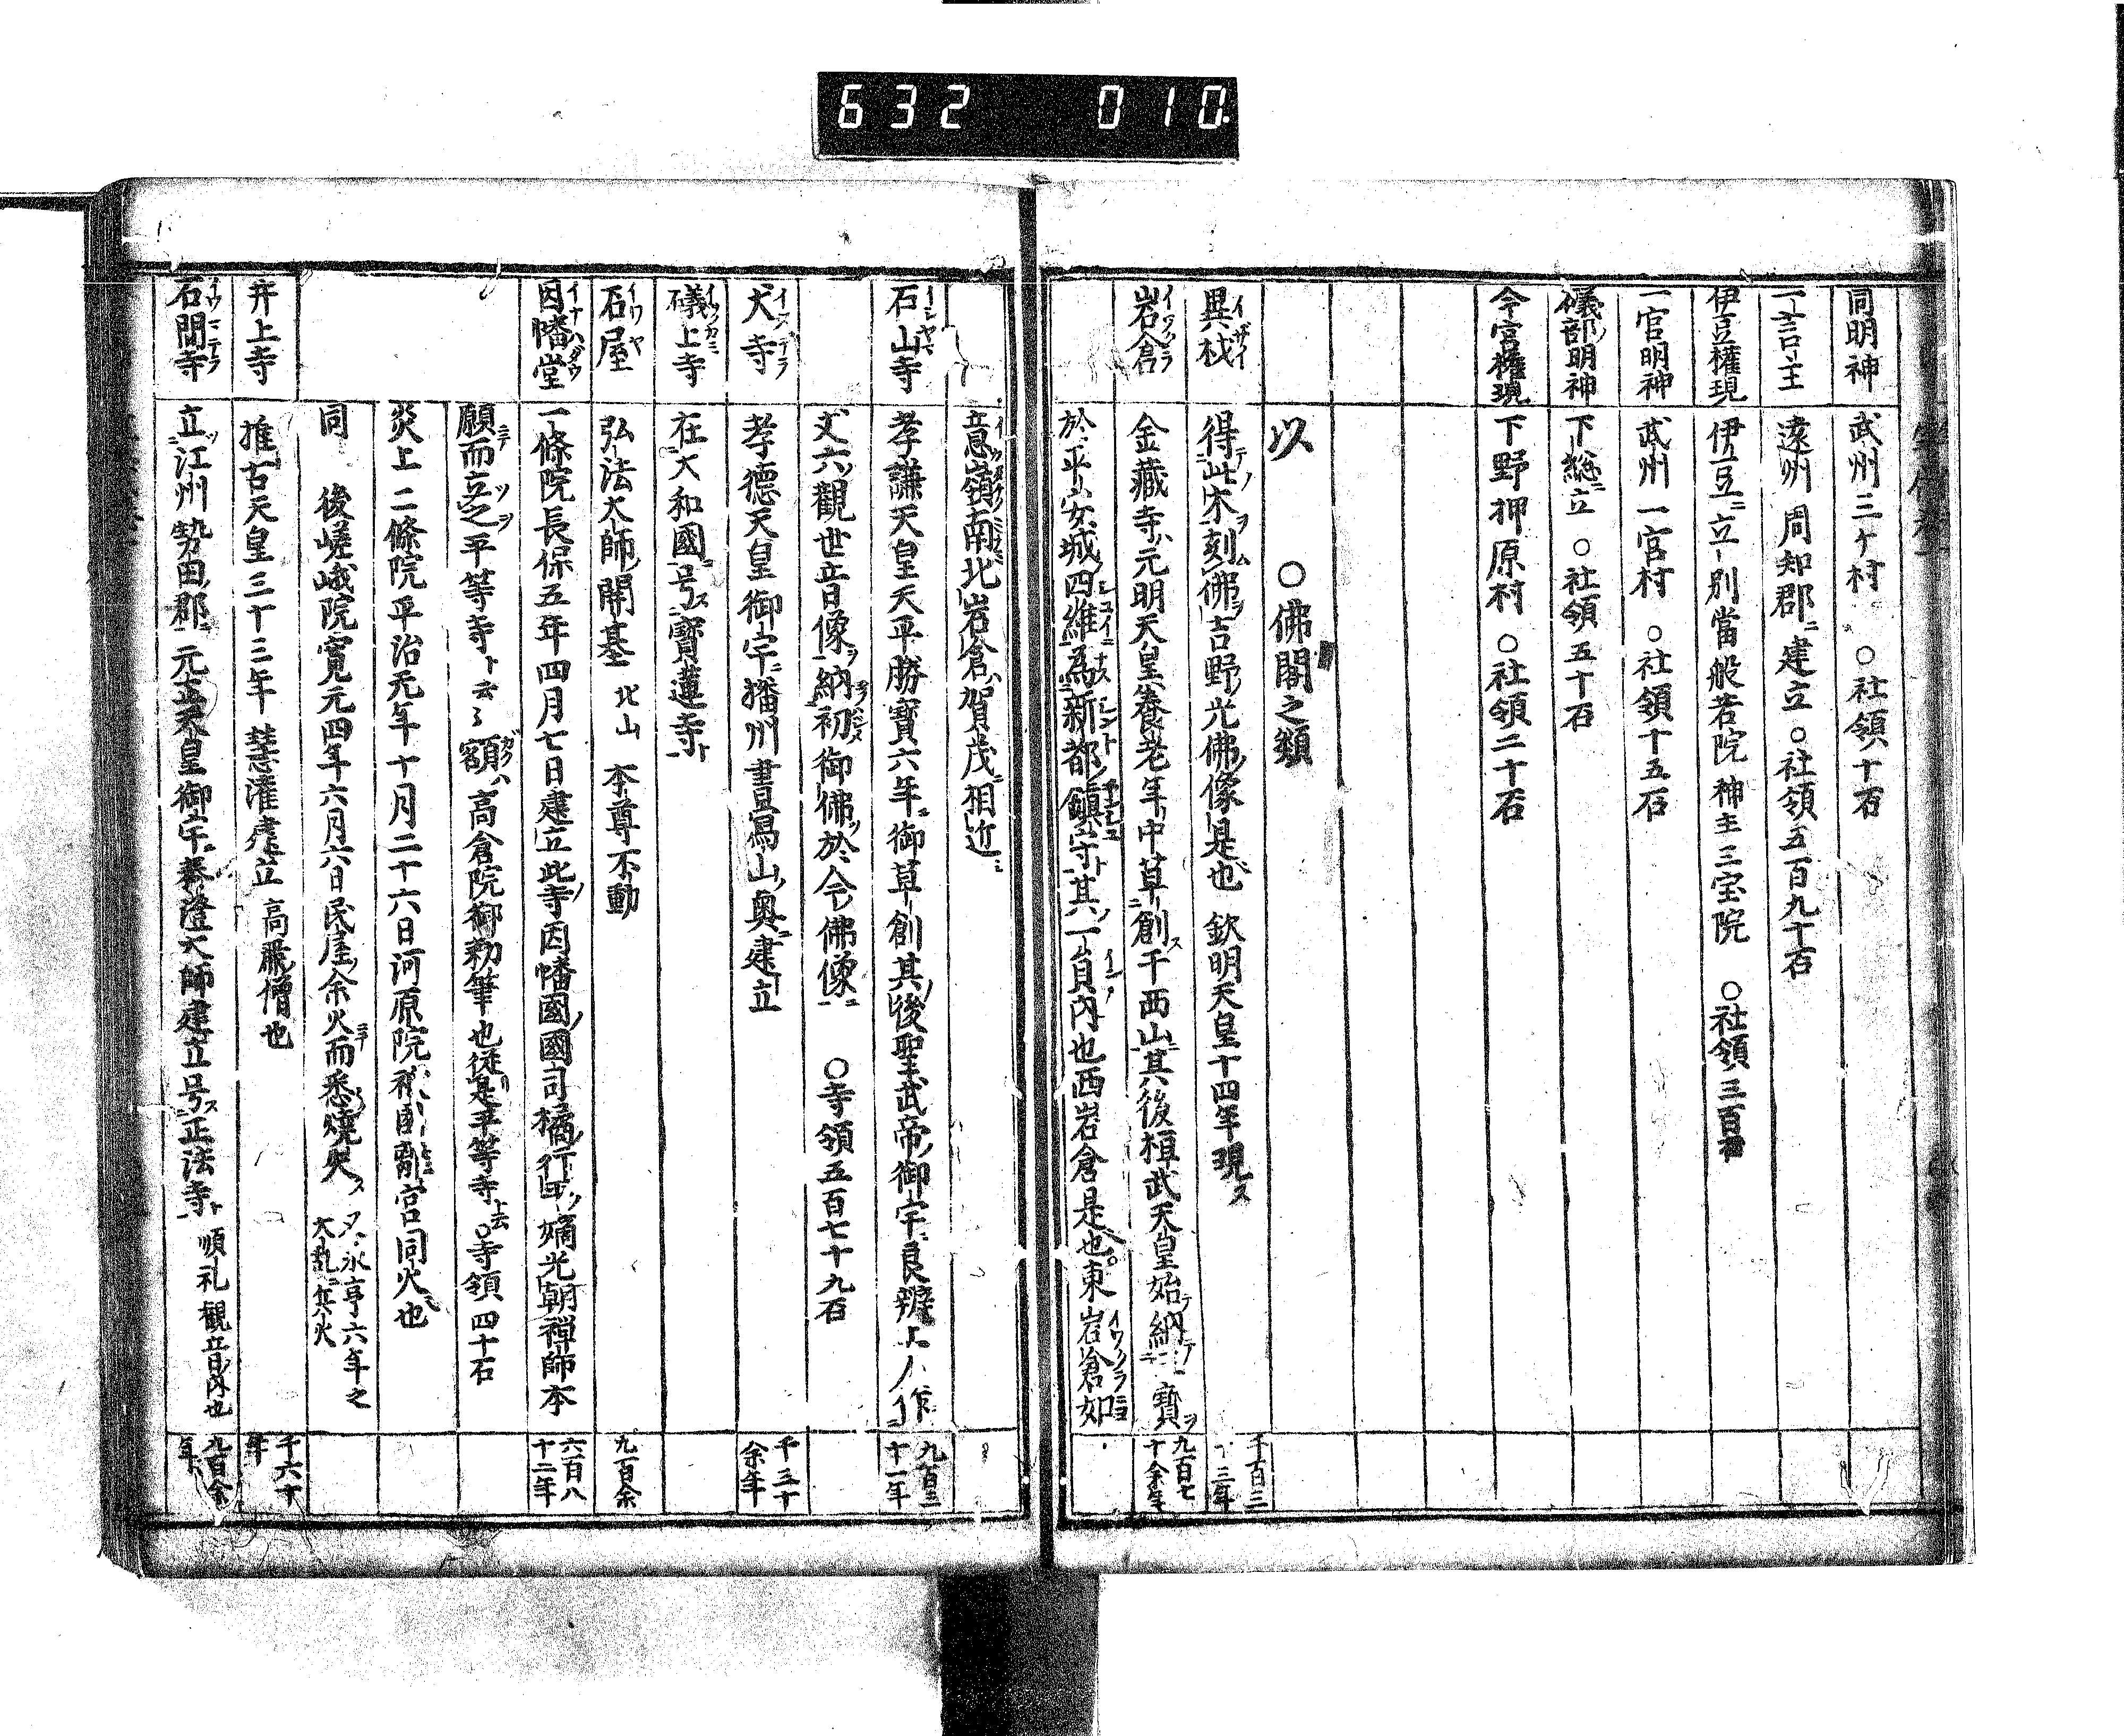 632 010
同明神 武州三ケ村 ○社領十石
一言主 遠州周知郡ニ建立 ○社領五百九十石
伊豆權現 伊豆ニ立別當般若院 神主三宝院 ○社領三百石
一宮明神 武州一宮村 ○社領十五石
礒部明神 下総ニ立 ○社領五十石
今宮權現 下野押原村 ○社領二十石
以 ○佛閣之類
異材 得此木刻佛吉野光佛像是也 欽明天皇十四年現ス
岩倉 金藏寺元明天皇養老年中草創ス于西山其後桓武天皇始納寶 九百七十余年
於平安城四維為新都鎮守ト其一員內也西岩倉是也東岩倉如
意嶺南北岩倉賀茂相近
石山寺 孝謙天皇天平勝寶六年御草創其後聖武帝御宇良辨上人作
丈六觀世音像納初御佛於今佛像 ○寺領五百七十九石
犬寺 孝德天皇御宇播州書寫山奧建立 千三十余年
礒上寺 在大和國号ス寶蓮寺ト
石屋 弘法大師開基 北山 本尊不動 九百余
因幡堂 一條院長保五年四月七日建立此寺因幡國國司橘行平嫡光朝禅師本 六百八十二年
願而立之平等寺ト云々額ハ高倉院御勅筆也從是平等寺ト云○寺領四十石
炎上 二條院平治元年十月二十六日河原院離宮同火也
同 後嵯峨院寛元四年六月六日民屋余火而悉燒失ス 又永亨六年之大乱兵火
井上寺 推古天皇三十三年 慧灌建立 高麗僧也 千六十年
石間寺 立江州勢田郡元正天皇御宇泰澄大師建立号ス正法寺ト 順礼觀音內也 九百余年